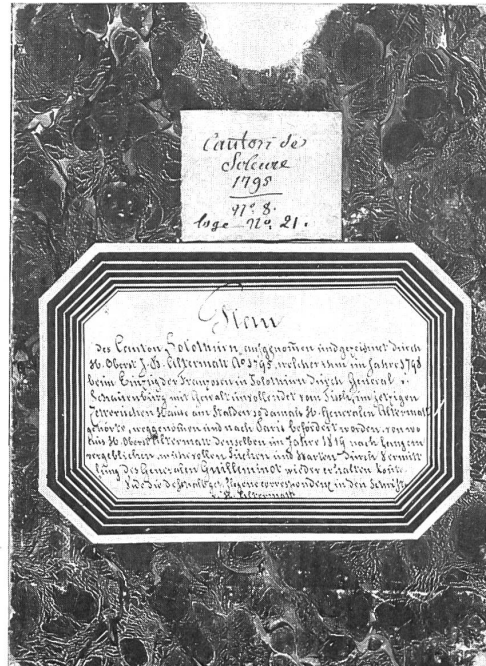 Canton de
Soleure
1795
No. 8.
loge No. 21.
Plan
des Canton Solothurn, aufgenomen und gezeichnet durch
H. Oberst J. B. Altermatt Ao 1795, welcher ihm im Jahre 1798
beim Einzug der Franzosen in Solothurn durch General v.
Schauenburg mit Gewalt unvollendet vom Tisch, im jetzigen
Hause am Stalden so damals H. Generalen Altermatt
gehörte, weggenomen und nach Paris befördert worden, von wo
aus H. Oberst Altermatt denselben im Jahre 1819 nach langem
vergeblichen, mühevollen Suchen und Warten durch Vermitt
lung des Generalen Guilleminot wieder erhalten konte.
Siehe die deshalb gepflogene correspondenz in den Schriften
Altermatt